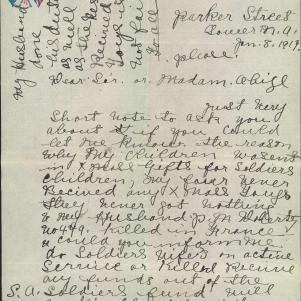 Parker Street
Tower N.A.
Jan. 8. 1919.
please.
Dear Sir. or Madam.
Just Very
Short note to ask you
about it if you could
let me know the reason
Why My Children wasent
in X mas Gifts for Soldiers
Children, My four never
Recived any X mas Toys
They never got nothing
My Husband
no 449. Killed in France
could you inform me
do Soldiers Wife's on active
Service or Killed Recive
any funds out of the
S.A. Soldiers fund will
My Husband
done his duty
as well
as the Rest
Recived
Toys it's
Not fair
to all